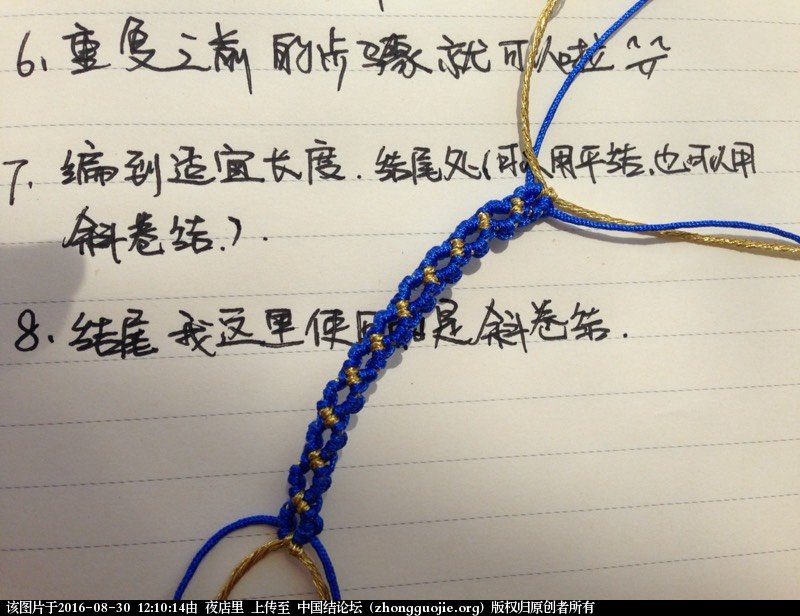 6、重复之前的步骤就可以啦
7、编到适宜长度.结尾处(可以用平结、也可以用
斜卷结.).
8、结尾我这里使用的是斜卷结.
该图片于2016-08-30 12:10:14由 夜店里 上传至 中国结论坛 (zhongguojie.org) 版权归原创者所有